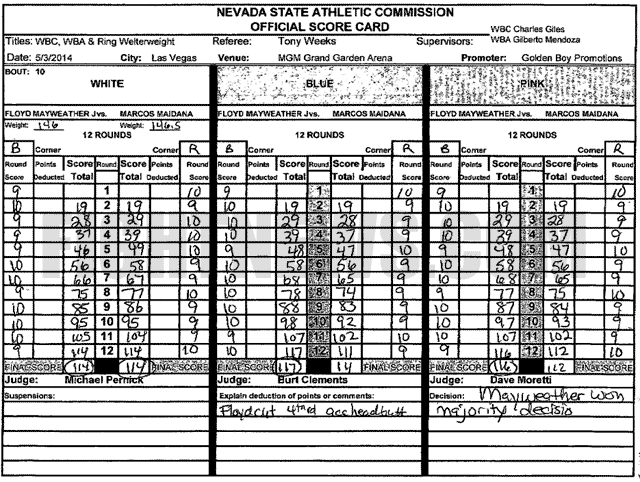 NEVADA STATE ATHLETIC COMMISSION
OFFICIAL SCORE CARD
WBC Charles Giles
Titles: WBC, WBA & Ring Welterweight Referee: Tony Weeks Supervisors: WBA Gilberto Mendoza
Date: 5/3/2014 City: Las Vegas Venue: MGM Grand Garden Arena Promoter: Golden Boy Promotions
BOUT: 10
WHITE BLUE PINK
FLOYD MAYWEATHER Jvs. MARCOS MAIDANA FLOYD MAYWEATHER Jvs. MARCOS MAIDANA FLOYD MAYWEATHER Jvs. MARCOS MAIDANA
Weight: 146 Weight: 146.5
12 ROUNDS 12 ROUNDS 12 ROUNDS
B Corner Corner R B Corner Corner R B Corner Corner R
Round Points Score Round Score Points Round Round Points Score Round Score Points Round Round Points Score Round Score Points Round
Score Deducted Total Total Deducted Score Score Deducted Total Total Deducted Score Score Deducted Total Total Deducted Score
9 1 10 9 1 10 9 1 10
10 19 2 19 9 10 19 2 19 9 10 19 2 19 9
9 28 3 29 10 10 29 3 28 9 10 29 3 28 9
9 37 4 39 10 10 39 4 37 9 10 39 4 37 9
9 46 5 49 10 9 48 5 47 10 9 48 5 47 10
10 56 6 58 9 10 58 6 56 9 10 58 6 56 9
10 66 7 67 9 10 68 7 65 9 10 68 7 65 9
9 75 8 77 10 10 78 8 74 9 9 77 8 75 10
10 85 9 86 9 10 88 9 83 9 10 87 9 84 9
10 95 10 95 9 10 98 10 92 9 10 97 10 93 9
10 105 11 104 9 9 107 11 102 10 10 107 11 102 9
9 114 12 114 10 10 117 12 111 9 9 116 12 112 10
FINAL SCORE 114 114 FINAL SCORE FINAL SCORE 117 FINAL SCORE FINAL SCORE 116 112 FINAL SCORE
Judge: Michael Pernick Judge: Burt Clements Judge: Dave Moretti
Suspensions: Explain deduction of points or comments: Decision: Mayweather won
Floyd cut 4th rd acc headbutt majority decisio